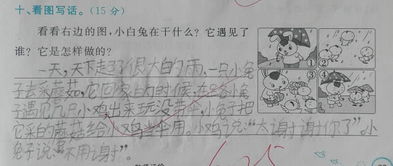 十、看图写话。(15分)
看看右边的图,小白兔在干什么?它遇见了
谁?它是怎样做的?
一天,天下起了很大的雨,一只小兔
子去采蘑菇,它回家上的时候,在路
子遇见几只小鸡出来玩没带伞,小兔子把
它采的蘑菇给小鸡当伞用。小鸡说:“太谢谢你了”,小
兔子说“不用谢”。